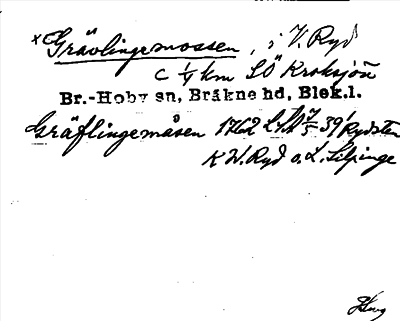 x Grävlingemossen, i V. Ryd
c 1/4 km SÖ Kroksjön
Br.-Hoby sn, Bräkne hd, Blek.l.
Gräflingemåsen 1762 LSA 7/5 39/ Rydsten
K W. Ryd o. L. Silpinge